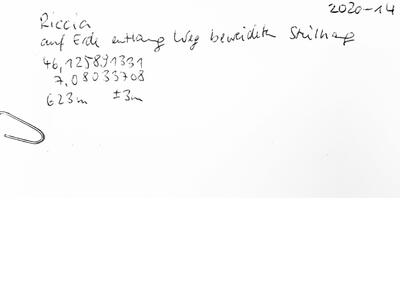 2020-14
Riccia
auf Erde entlang Weg beweideter Steilhang
46,125891331
7,08033708
623m ±3m